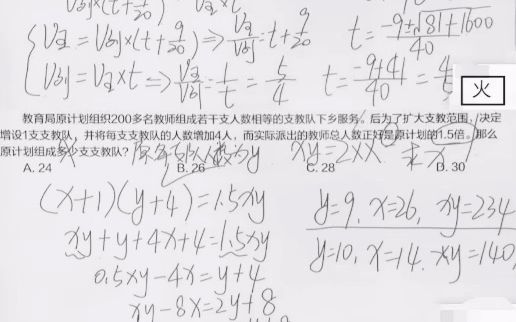 V引×(t+9/20) V卫×t
{V卫=V引×(t+9/20)⇒V卫/V引=t+9/20 t=(-9±√(81+1600))/40
V引=V卫×t⇒V卫/V引=1/t=5/4 t=(-9+41)/40=4/5
火
教育局原计划组织200多名教师组成若干支人数相等的支教队下乡服务。后为了扩大支教范围,决定
增设1支支教队,并将每支支教队的人数增加4人,而实际派出的教师总人数正好是原计划的1.5倍。那么
原计划组成多少支支教队? 原每支队人数为y xy=2×× 求x
A. 24 B. 26 C. 28 D. 30
(x+1)(y+4)=1.5xy
y=9, x=26, xy=234
xy+y+4x+4=1.5xy
y=10, x=14. xy=140,
0.5xy-4x=y+4
xy-8x=2y+8